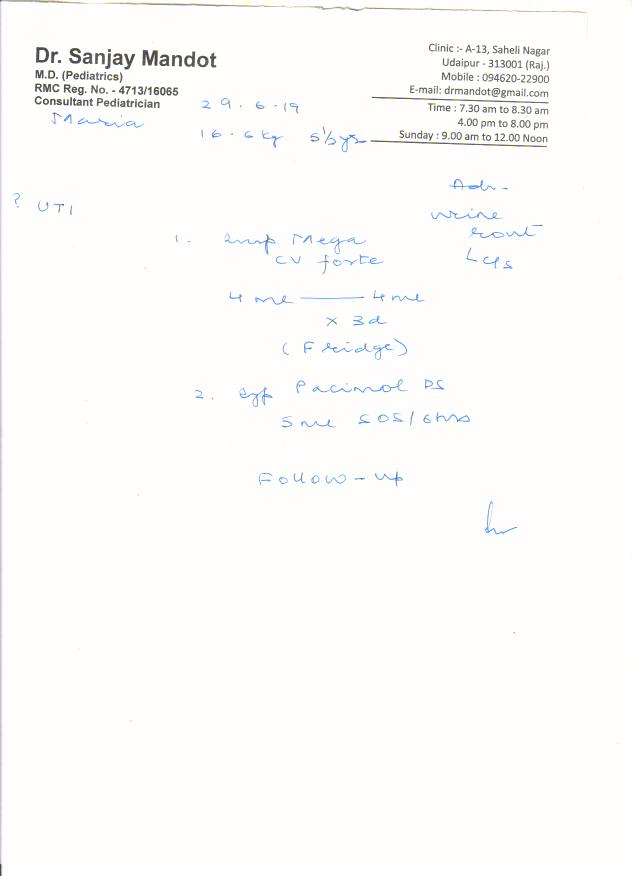 Dr. Sanjay Mandot
M.D. (Pediatrics)
RMC Reg. No. - 4713/16065
Consultant Pediatrician
Clinic :- A-13, Saheli Nagar
Udaipur - 313001 (Raj.)
Mobile : 094620-22900
E-mail: drmandot@gmail.com
Time : 7.30 am to 8.30 am
4.00 pm to 8.00 pm
Sunday : 9.00 am to 12.00 Noon
29.6.19
Maria
16.6 kg 5½ yrs
Adv -
urine
rout
c/s
? UTI
1. Syp Mega
CV forte
4 ml — 4 ml
x 3d
(Fridge)
2. Syp Pacimol DS
5 ml SOS/6hrs
Follow-up